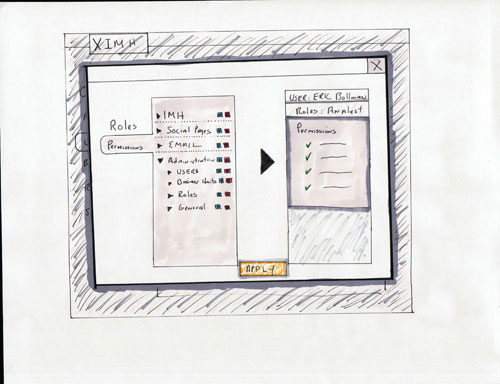 X IMH
X
Roles
Permissions
IMH
Social Pages
EMAIL
Administration
USERS
Roles
General
USER: ERIC Bollman
Roles: Analyst
Permissions
APPLY